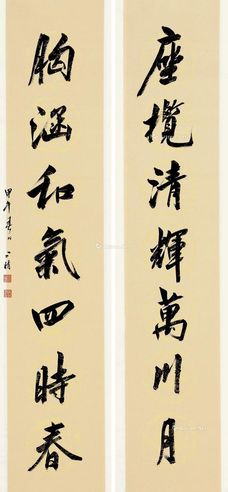 座攬清輝萬川月
胸涵和氣四時春
甲午春日